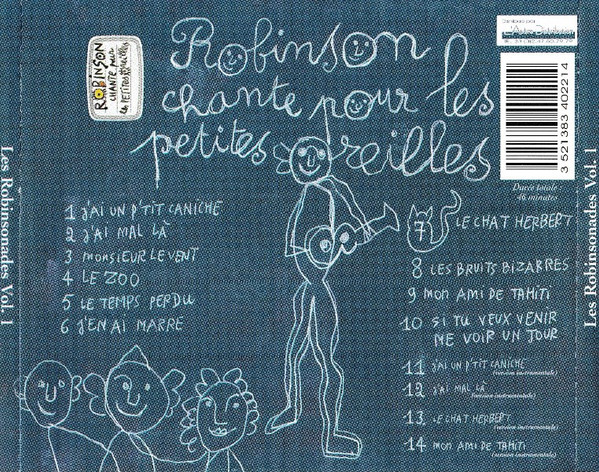 Robinson
chante pour les
petites oreilles
ROBINSON
CHANTE POUR
LES PETITES OREILLES
3 521383 402214
Durée totale
46 minutes
Les Robinsonades Vol. 1
Les Robinsonades Vol. 1
1 J'AI UN P'TIT CANICHE
2 J'AI MAL LÀ
3 MONSIEUR LE VENT
4 LE ZOO
5 LE TEMPS PERDU
6 J'EN AI MARRE
7 LE CHAT HERBERT
8 LES BRUITS BIZARRES
9 MON AMI DE TAHITI
10 SI TU VEUX VENIR
ME VOIR UN JOUR
11 J'AI UN P'TIT CANICHE
(version instrumentale)
12 J'AI MAL LÀ
(version instrumentale)
13. LE CHAT HERBERT
(version instrumentale)
14 MON AMI DE TAHITI
(version instrumentale)